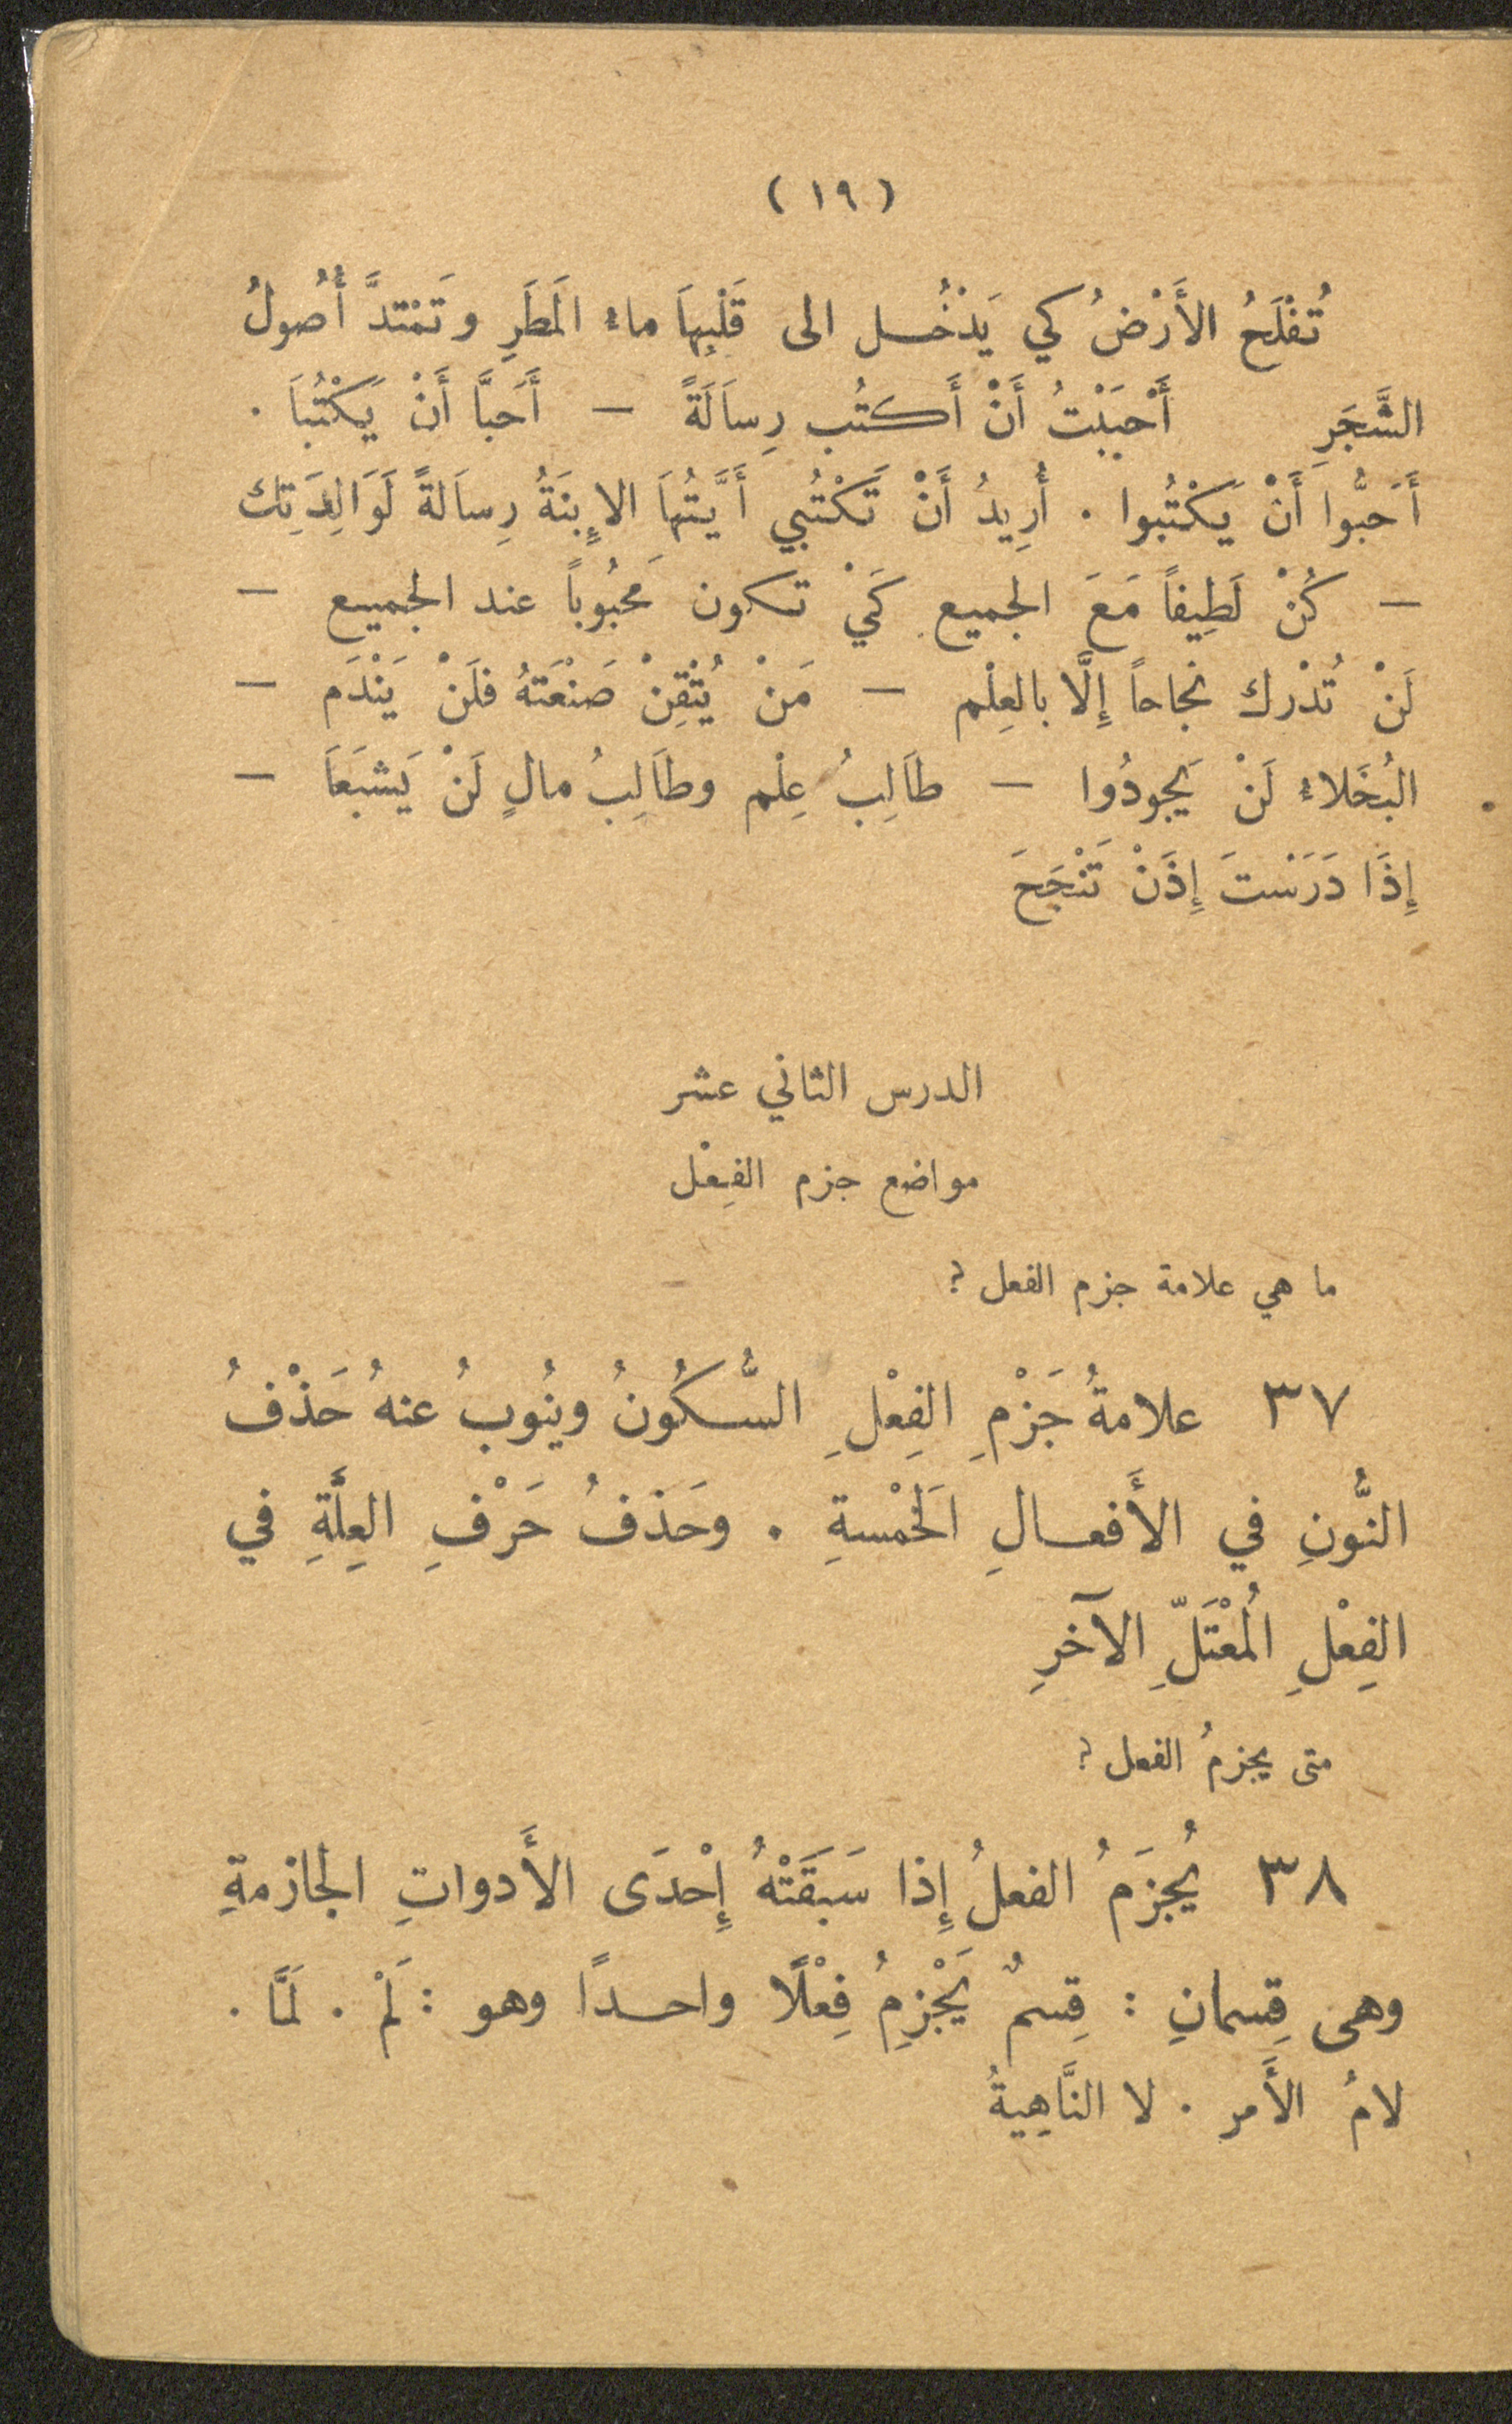 (١٩)
تُفْلَحُ الأَرْضُ كي يَدْخُل الى قَلْبِهَا ماء المَطَرِ وتَمْتدَّ أُصُولُ
الشَّجَرِ أَحْبَبْتُ أَنْ أَكتُب رِسَالَةً — أَحَبَّا أَنْ يَكْتُبَا .
أَحَبُّوا أَنْ يَكْتُبوا . أُرِيدُ أَنْ تَكْتُبي أَيَّتُهَا الإِبنَةُ رِسَالةً لَوَالِدَتِك
— كُنْ لَطِيفاً مَعَ الجميع كَيْ تكون مَحبُوباً عند الجميع —
لَنْ تُدْرك نجاحاً إِلَّا بالعِلْم — مَنْ يُتْقِنْ صَنْعَتهُ فلَنْ يَنْدَم —
البُخَلاء لَنْ يَجودُوا — طَالِبُ عِلْم وطَالِبُ مالٍ لَنْ يَشبَعَا —
إِذَا دَرَسْتَ إِذَنْ تَنْجَحَ
الدرس الثاني عشر
مواضع جزم الفِعْل
ما هي علامة جزم الفعل ؟
٣٧ علامةُ جَزْمِ الفِعْلِ السُّكُونُ وينُوبُ عنهُ حَذْفُ
النُّونِ في الأَفعالِ الَخمْسةِ . وحَذفُ حَرْفِ العِلَّةِ في
الفِعْلِ المُعْتَلِّ الآخرِ
متى يجزمُ الفعل ؟
٣٨ يُجزَمُ الفعلُ إِذا سَبَقَتْهُ إِحْدَى الأَدواتِ الجازمةِ
وهى قِسمانِ : قِسمٌ يَجْزِمُ فِعْلًا واحدًا وهو : لَمْ . لَمَّا .
لامُ الأَمر . لا النَّاهِيةُ